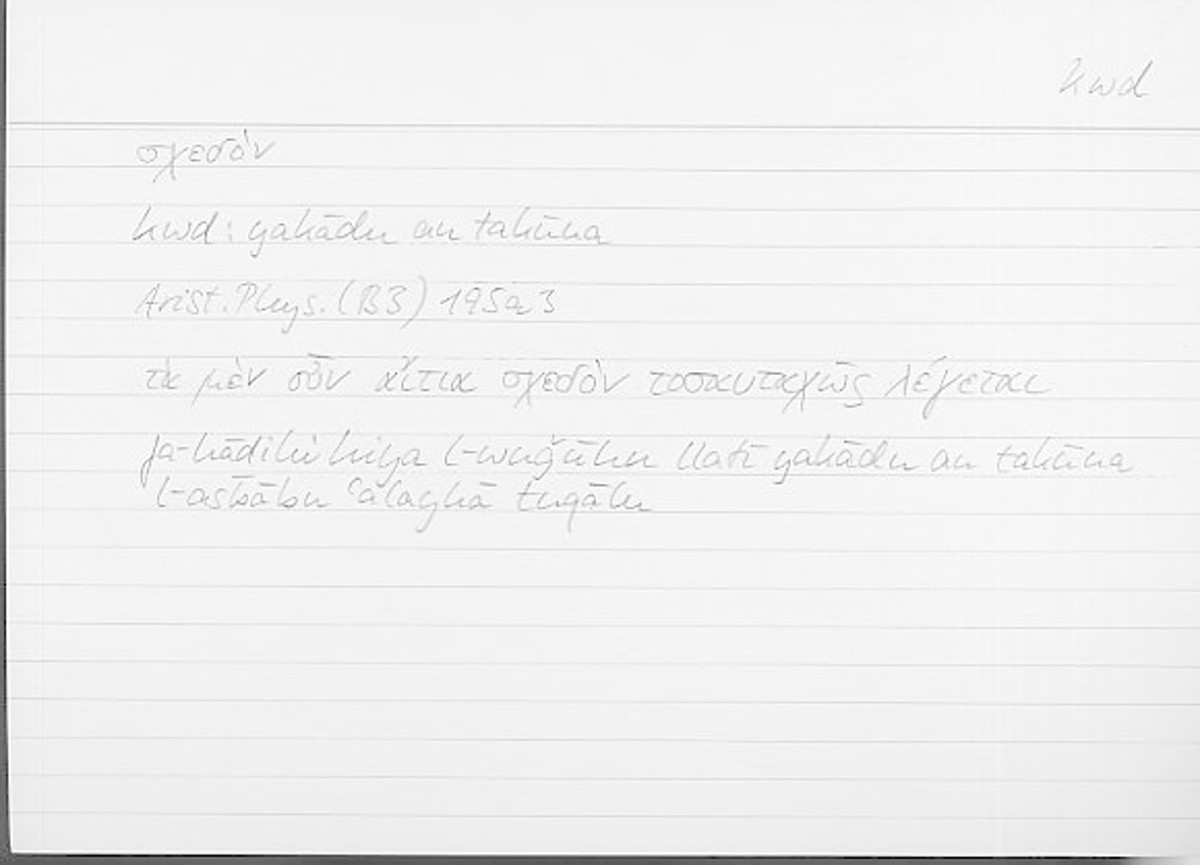 kwd
σχεδόν
kwd: yakādu an takūna
Arist. Phys. (B3) 195a3
τὰ μὲν οὖν αἴτια σχεδὸν τοσαυταχῶς λέγεται
fa-hādihi hiya l-wuǧūhu llatī yakādu an takūna
l-asbābu ʿalayhā tuqālu